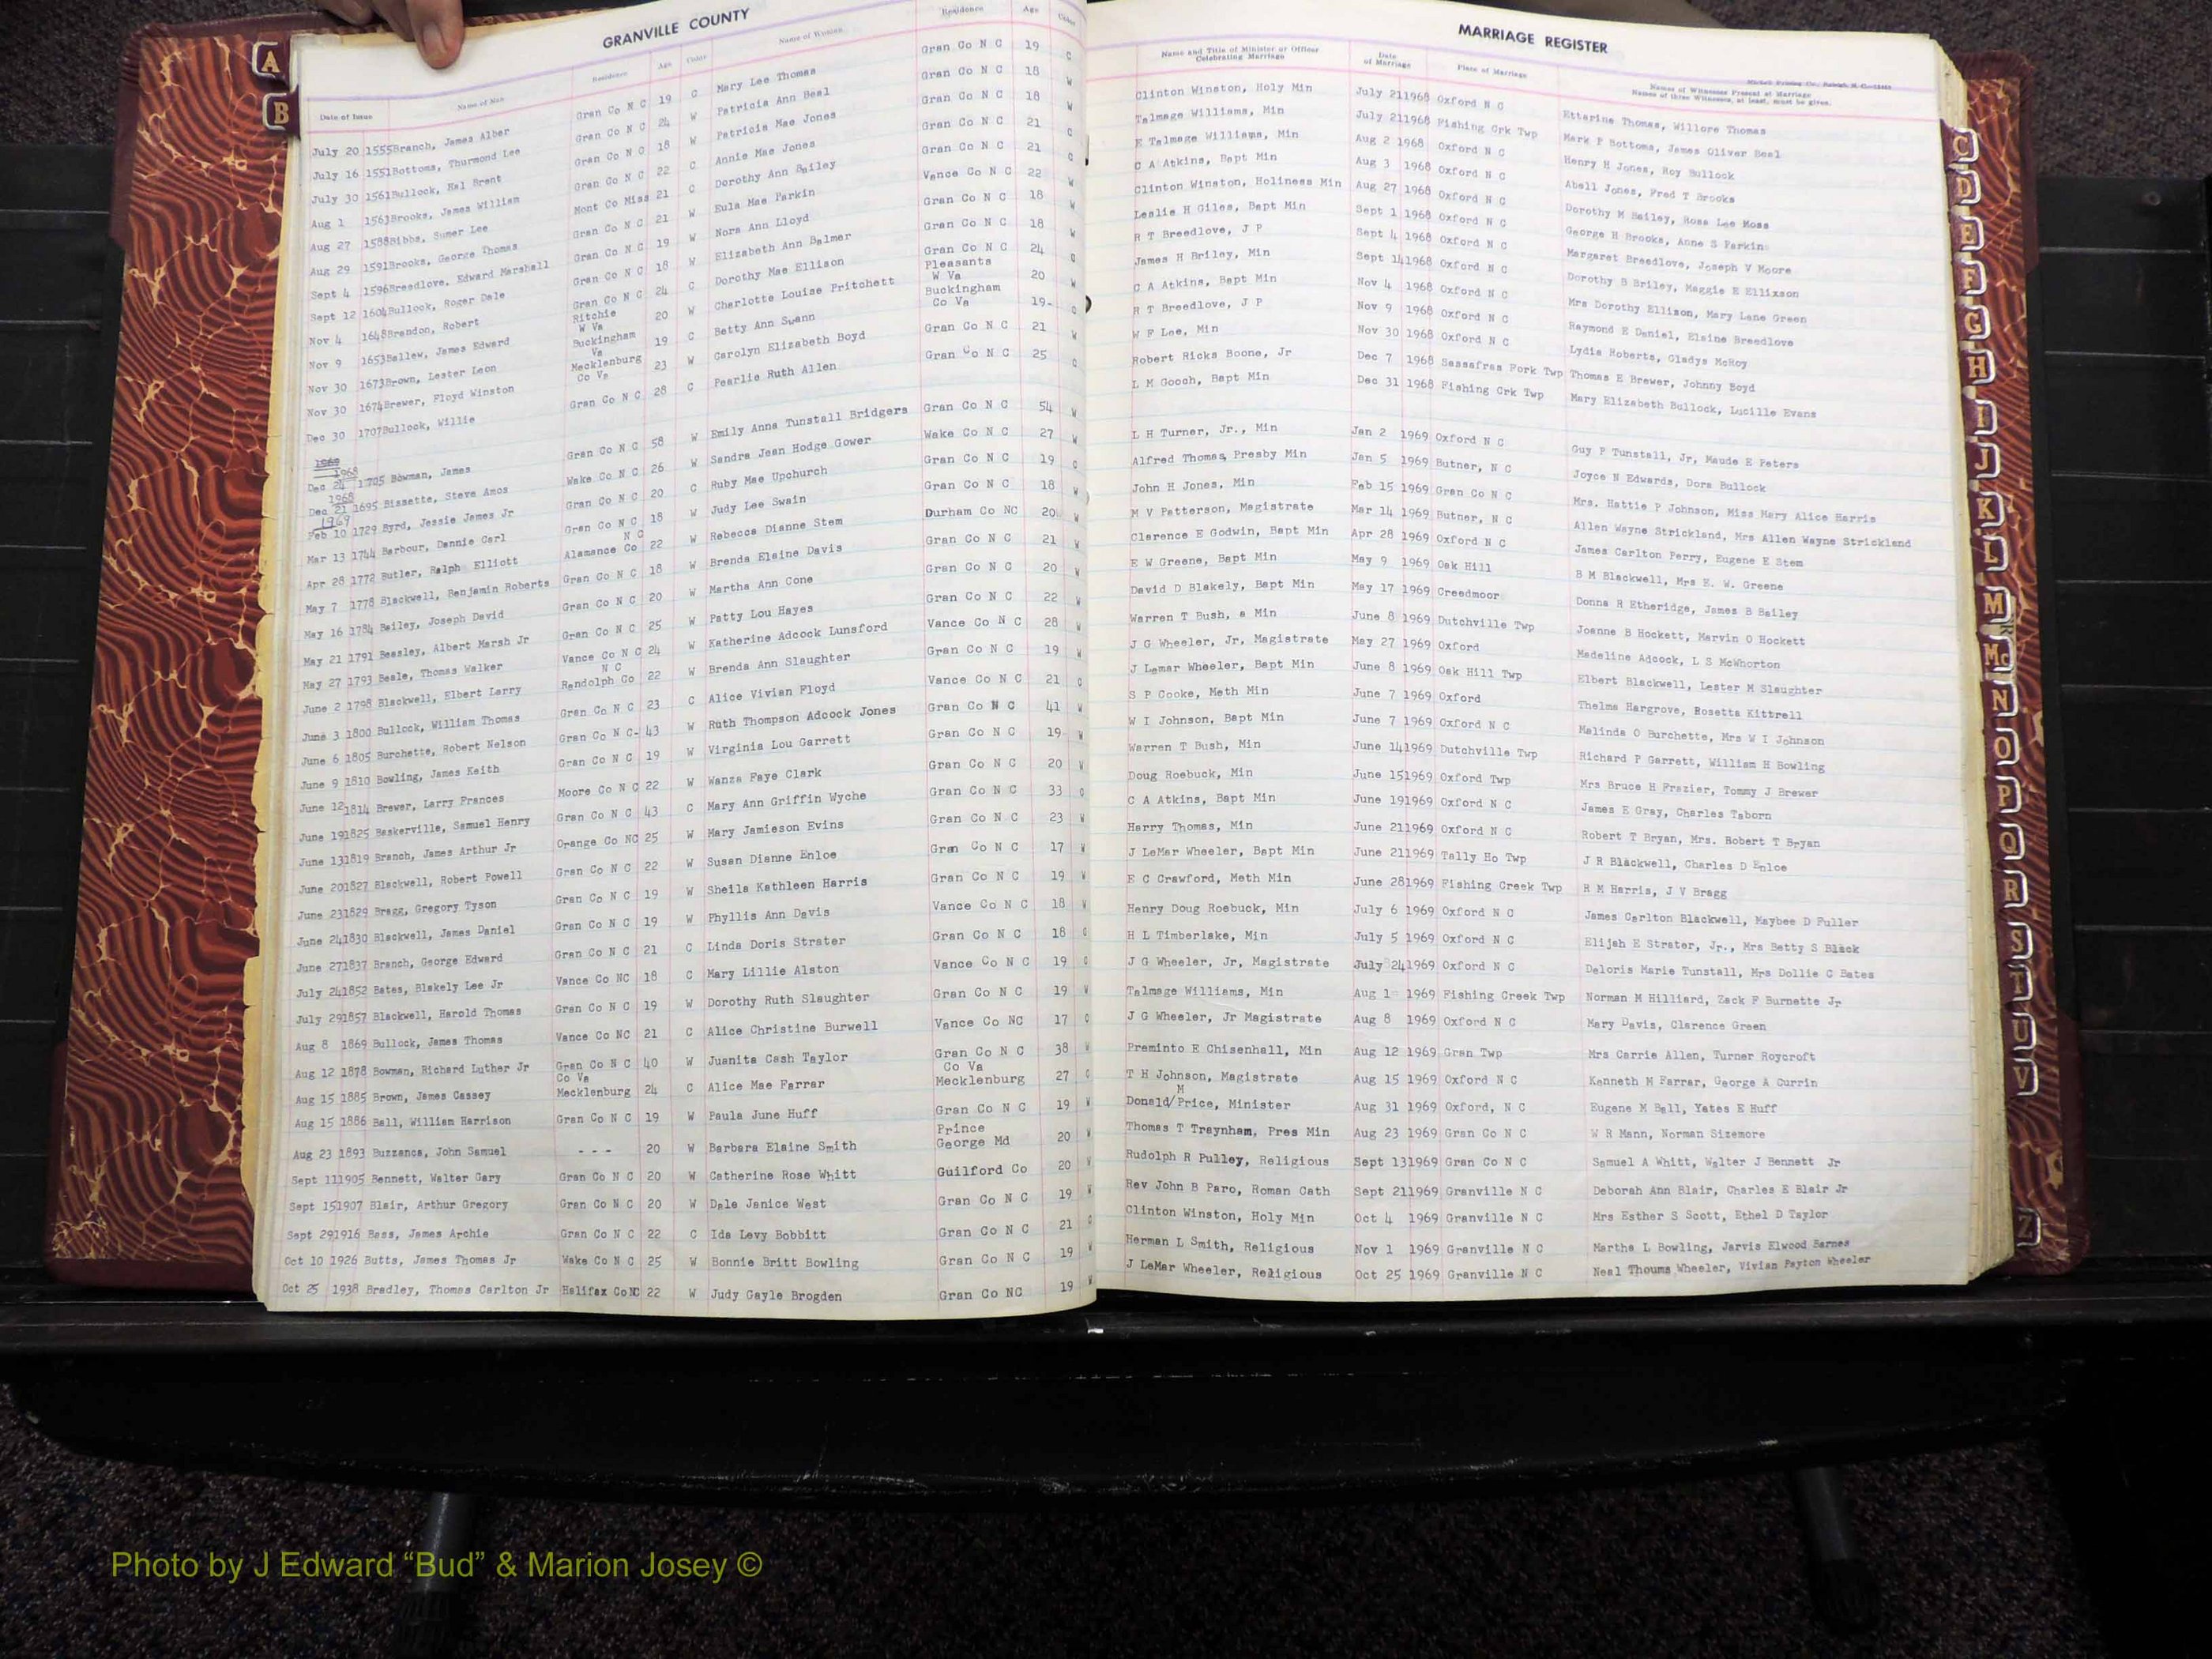 GRANVILLE COUNTY
MARRIAGE REGISTER
Date of Issue Name of Man Residence Age Color Name of Woman Residence Age Color Name and Title of Minister or Officer Celebrating Marriage Date of Marriage Place of Marriage Names of Witnesses Present at Marriage Names of three Witnesses, at least, must be given.
July 20 1555 Branch, James Alber Gran Co N C 19 C Mary Lee Thomas Gran Co N C 19 C Clinton Winston, Holy Min July 21 1968 Oxford N C Ettarine Thomas, Willore Thomas
July 16 1551 Bottoms, Thurmond Lee Gran Co N C 24 W Patricia Ann Beal Gran Co N C 18 W Talmage Williams, Min July 21 1968 Fishing Crk Twp Mark P Bottoms, James Oliver Beal
July 30 1561 Bullock, Hal Brent Gran Co N C 18 W Patricia Mae Jones Gran Co N C 18 W E Talmage Williams, Min Aug 2 1968 Oxford N C Henry H Jones, Roy Bullock
Aug 1 1563 Brooks, James William Gran Co N C 22 C Annie Mae Jones Gran Co N C 21 C C A Atkins, Bapt Min Aug 3 1968 Oxford N C Abell Jones, Fred T Brooks
Aug 27 1588 Bibbs, Sumer Lee Mont Co Miss 21 C Dorothy Ann Bailey Gran Co N C 21 C Clinton Winston, Holiness Min Aug 27 1968 Oxford N C Dorothy M Bailey, Rosa Lee Moss
Aug 29 1591 Brooks, George Thomas Gran Co N C 21 W Eula Mae Parkin Vance Co N C 22 W Leslie H Giles, Bapt Min Sept 1 1968 Oxford N C George H Brooks, Anne S Parkin
Sept 4 1596 Breedlove, Edward Marshall Gran Co N C 19 W Nora Ann Lloyd Gran Co N C 18 W R T Breedlove, J P Sept 4 1968 Oxford N C Margaret Breedlove, Joseph V Moore
Sept 12 1604 Bullock, Roger Dale Gran Co N C 18 W Elizabeth Ann Balmer Gran Co N C 18 W James H Briley, Min Sept 14 1968 Oxford N C Dorothy B Briley, Maggie E Ellixson
Nov 4 1648 Brandon, Robert Gran Co N C 24 C Dorothy Mae Ellison Gran Co N C 24 C C A Atkins, Bapt Min Nov 4 1968 Oxford N C Mrs Dorothy Ellison, Mary Lane Green
Nov 9 1653 Ballew, James Edward Ritchie W Va 20 W Charlotte Louise Pritchett Pleasants W Va 20 W R T Breedlove, J P Nov 9 1968 Oxford N C Raymond E Daniel, Elaine Breedlove
Nov 30 1673 Brown, Lester Leon Buckingham Va 19 C Betty Ann Swann Buckingham Co Va 19 C W F Lee, Min Nov 30 1968 Oxford N C Lydia Roberts, Gladys McRoy
Nov 30 1674 Brewer, Floyd Winston Mecklenburg Co Va 23 W Carolyn Elizabeth Boyd Gran Co N C 21 W Robert Ricks Boone, Jr Dec 7 1968 Sassafras Fork Twp Thomas E Brewer, Johnny Boyd
Dec 30 1707 Bullock, Willie Gran Co N C 28 C Pearlie Ruth Allen Gran Co N C 25 C L M Gooch, Bapt Min Dec 31 1968 Fishing Crk Twp Mary Elizabeth Bullock, Lucille Evans
1969
1968
Dec 24 1705 Bowman, James Gran Co N C 58 W Emily Anna Tunstall Bridgers Gran Co N C 54 W L H Turner, Jr., Min Jan 2 1969 Oxford N C Guy P Tunstall, Jr, Maude E Peters
1968
Dec 21 1695 Bissette, Steve Amos Wake Co N C 26 W Sandra Jean Hodge Gower Wake Co N C 27 W Alfred Thomas, Presby Min Jan 5 1969 Butner, N C Joyce N Edwards, Dora Bullock
1969
Feb 10 1729 Byrd, Jessie James Jr Gran Co N C 20 C Ruby Mae Upchurch Gran Co N C 19 C John H Jones, Min Feb 15 1969 Gran Co N C Mrs. Hattie P Johnson, Miss Mary Alice Harris
Mar 13 1744 Barbour, Dannie Carl Gran Co N C 18 W Judy Lee Swain Gran Co N C 18 W M V Patterson, Magistrate Mar 14 1969 Butner, N C Allen Wayne Strickland, Mrs Allen Wayne Strickland
Apr 28 1772 Butler, Ralph Elliott Alamance Co N C 22 W Rebecca Dianne Stem Durham Co NC 20 W Clarence E Godwin, Bapt Min Apr 28 1969 Oxford N C James Carlton Perry, Eugene E Stem
May 7 1778 Blackwell, Benjamin Roberts Gran Co N C 18 W Brenda Elaine Davis Gran Co N C 21 W E W Greene, Bapt Min May 9 1969 Oak Hill B M Blackwell, Mrs E. W. Greene
May 16 1784 Bailey, Joseph David Gran Co N C 20 W Martha Ann Cone Gran Co N C 20 W David D Blakely, Bapt Min May 17 1969 Creedmoor Donna R Etheridge, James B Bailey
May 21 1791 Beasley, Albert Marsh Jr Gran Co N C 25 W Patty Lou Hayes Gran Co N C 22 W Warren T Bush, a Min June 8 1969 Dutchville Twp Joanne B Hockett, Marvin O Hockett
May 27 1793 Beale, Thomas Walker Vance Co N C 24 W Katherine Adcock Lunsford Vance Co N C 28 W J G Wheeler, Jr, Magistrate May 27 1969 Oxford Madeline Adcock, L S McWhorton
June 2 1798 Blackwell, Elbert Larry Randolph Co N C 22 W Brenda Ann Slaughter Gran Co N C 19 W J Lemar Wheeler, Bapt Min June 8 1969 Oak Hill Twp Elbert Blackwell, Lester M Slaughter
June 3 1800 Bullock, William Thomas Gran Co N C 23 C Alice Vivian Floyd Vance Co N C 21 C S P Cooke, Meth Min June 7 1969 Oxford Thelma Hargrove, Rosetta Kittrell
June 6 1805 Burchette, Robert Nelson Gran Co N C- 43 W Ruth Thompson Adcock Jones Gran Co N C 41 W W I Johnson, Bapt Min June 7 1969 Oxford N C Malinda O Burchette, Mrs W I Johnson
June 9 1810 Bowling, James Keith Gran Co N C 19 W Virginia Lou Garrett Gran Co N C 19 W Warren T Bush, Min June 14 1969 Dutchville Twp Richard P Garrett, William H Bowling
June 12 1814 Brewer, Larry Frances Moore Co N C 22 W Wanza Faye Clark Gran Co N C 20 W Doug Roebuck, Min June 15 1969 Oxford Twp Mrs Bruce H Frazier, Tommy J Brewer
June 19 1825 Baskerville, Samuel Henry Gran Co N C 43 C Mary Ann Griffin Wyche Gran Co N C 33 C C A Atkins, Bapt Min June 19 1969 Oxford N C James E Gray, Charles Taborn
June 13 1819 Branch, James Arthur Jr Orange Co NC 25 W Mary Jamieson Evins Gran Co N C 23 W Harry Thomas, Min June 21 1969 Oxford N C Robert T Bryan, Mrs. Robert T Bryan
June 20 1827 Blackwell, Robert Powell Gran Co N C 22 W Susan Dianne Enloe Gran Co N C 17 W J LeMar Wheeler, Bapt Min June 21 1969 Tally Ho Twp J R Blackwell, Charles D Enloe
June 23 1829 Bragg, Gregory Tyson Gran Co N C 19 W Sheila Kathleen Harris Gran Co N C 19 W E C Crawford, Meth Min June 28 1969 Fishing Creek Twp R M Harris, J V Bragg
June 24 1830 Blackwell, James Daniel Gran Co N C 19 W Phyllis Ann Davis Vance Co N C 18 W Henry Doug Roebuck, Min July 6 1969 Oxford N C James Carlton Blackwell, Maybee D Fuller
June 27 1837 Branch, George Edward Gran Co N C 21 C Linda Doris Strater Gran Co N C 18 C H L Timberlake, Min July 5 1969 Oxford N C Elijah E Strater, Jr., Mrs Betty S Black
July 24 1852 Bates, Blakely Lee Jr Vance Co NC 18 C Mary Lillie Alston Vance Co N C 19 C J G Wheeler, Jr, Magistrate July 24 1969 Oxford N C Deloris Marie Tunstall, Mrs Dollie C Bates
July 29 1857 Blackwell, Harold Thomas Gran Co N C 19 W Dorothy Ruth Slaughter Gran Co N C 19 W Talmage Williams, Min Aug 1 1969 Fishing Creek Twp Norman M Hilliard, Zack F Burnette Jr
Aug 8 1869 Bullock, James Thomas Vance Co NC 21 C Alice Christine Burwell Vance Co NC 17 C J G Wheeler, Jr Magistrate Aug 8 1969 Oxford N C Mary Davis, Clarence Green
Aug 12 1878 Bowman, Richard Luther Jr Gran Co N C 40 W Juanita Cash Taylor Gran Co N C 38 W Preminto E Chisenhall, Min Aug 12 1969 Gran Twp Mrs Carrie Allen, Turner Roycroft
Aug 15 1885 Brown, James Cassey Co Va Mecklenburg 24 C Alice Mae Farrar Co Va Mecklenburg 27 C T H Johnson, Magistrate Aug 15 1969 Oxford N C Kenneth M Farrar, George A Currin
Aug 15 1886 Ball, William Harrison Gran Co N C 19 W Paula June Huff Gran Co N C 19 W Donald/M Price, Minister Aug 31 1969 Oxford, N C Eugene M Ball, Yates E Huff
Aug 23 1893 Buzzanca, John Samuel - - - 20 W Barbara Elaine Smith Prince George Md 20 W Thomas T Traynham, Pres Min Aug 23 1969 Gran Co N C W R Mann, Norman Sizemore
Sept 11 1905 Bennett, Walter Gary Gran Co N C 20 W Catherine Rose Whitt Guilford Co 20 W Rudolph R Pulley, Religious Sept 13 1969 Gran Co N C Samuel A Whitt, Walter J Bennett Jr
Sept 15 1907 Blair, Arthur Gregory Gran Co N C 20 W Dale Janice West Gran Co N C 19 W Rev John B Paro, Roman Cath Sept 21 1969 Granville N C Deborah Ann Blair, Charles E Blair Jr
Sept 29 1916 Bass, James Archie Gran Co N C 22 C Ida Levy Bobbitt Gran Co N C 21 C Clinton Winston, Holy Min Oct 4 1969 Granville N C Mrs Esther S Scott, Ethel D Taylor
Oct 10 1926 Butts, James Thomas Jr Wake Co N C 25 W Bonnie Britt Bowling Gran Co N C 19 W Herman L Smith, Religious Nov 1 1969 Granville N C Martha L Bowling, Jarvis Elwood Barnes
Oct 25 1938 Bradley, Thomas Carlton Jr Halifax Co NC 22 W Judy Gayle Brogden Gran Co NC 19 W J LeMar Wheeler, Religious Oct 25 1969 Granville N C Neal Thoums Wheeler, Vivian Payton Wheeler
A
B
C
D
E
F
G
H
I
J
K
L
M
Mc
N
O
P
Q
R
S
T
U
V
Z
Photo by J Edward “Bud” & Marion Josey ©